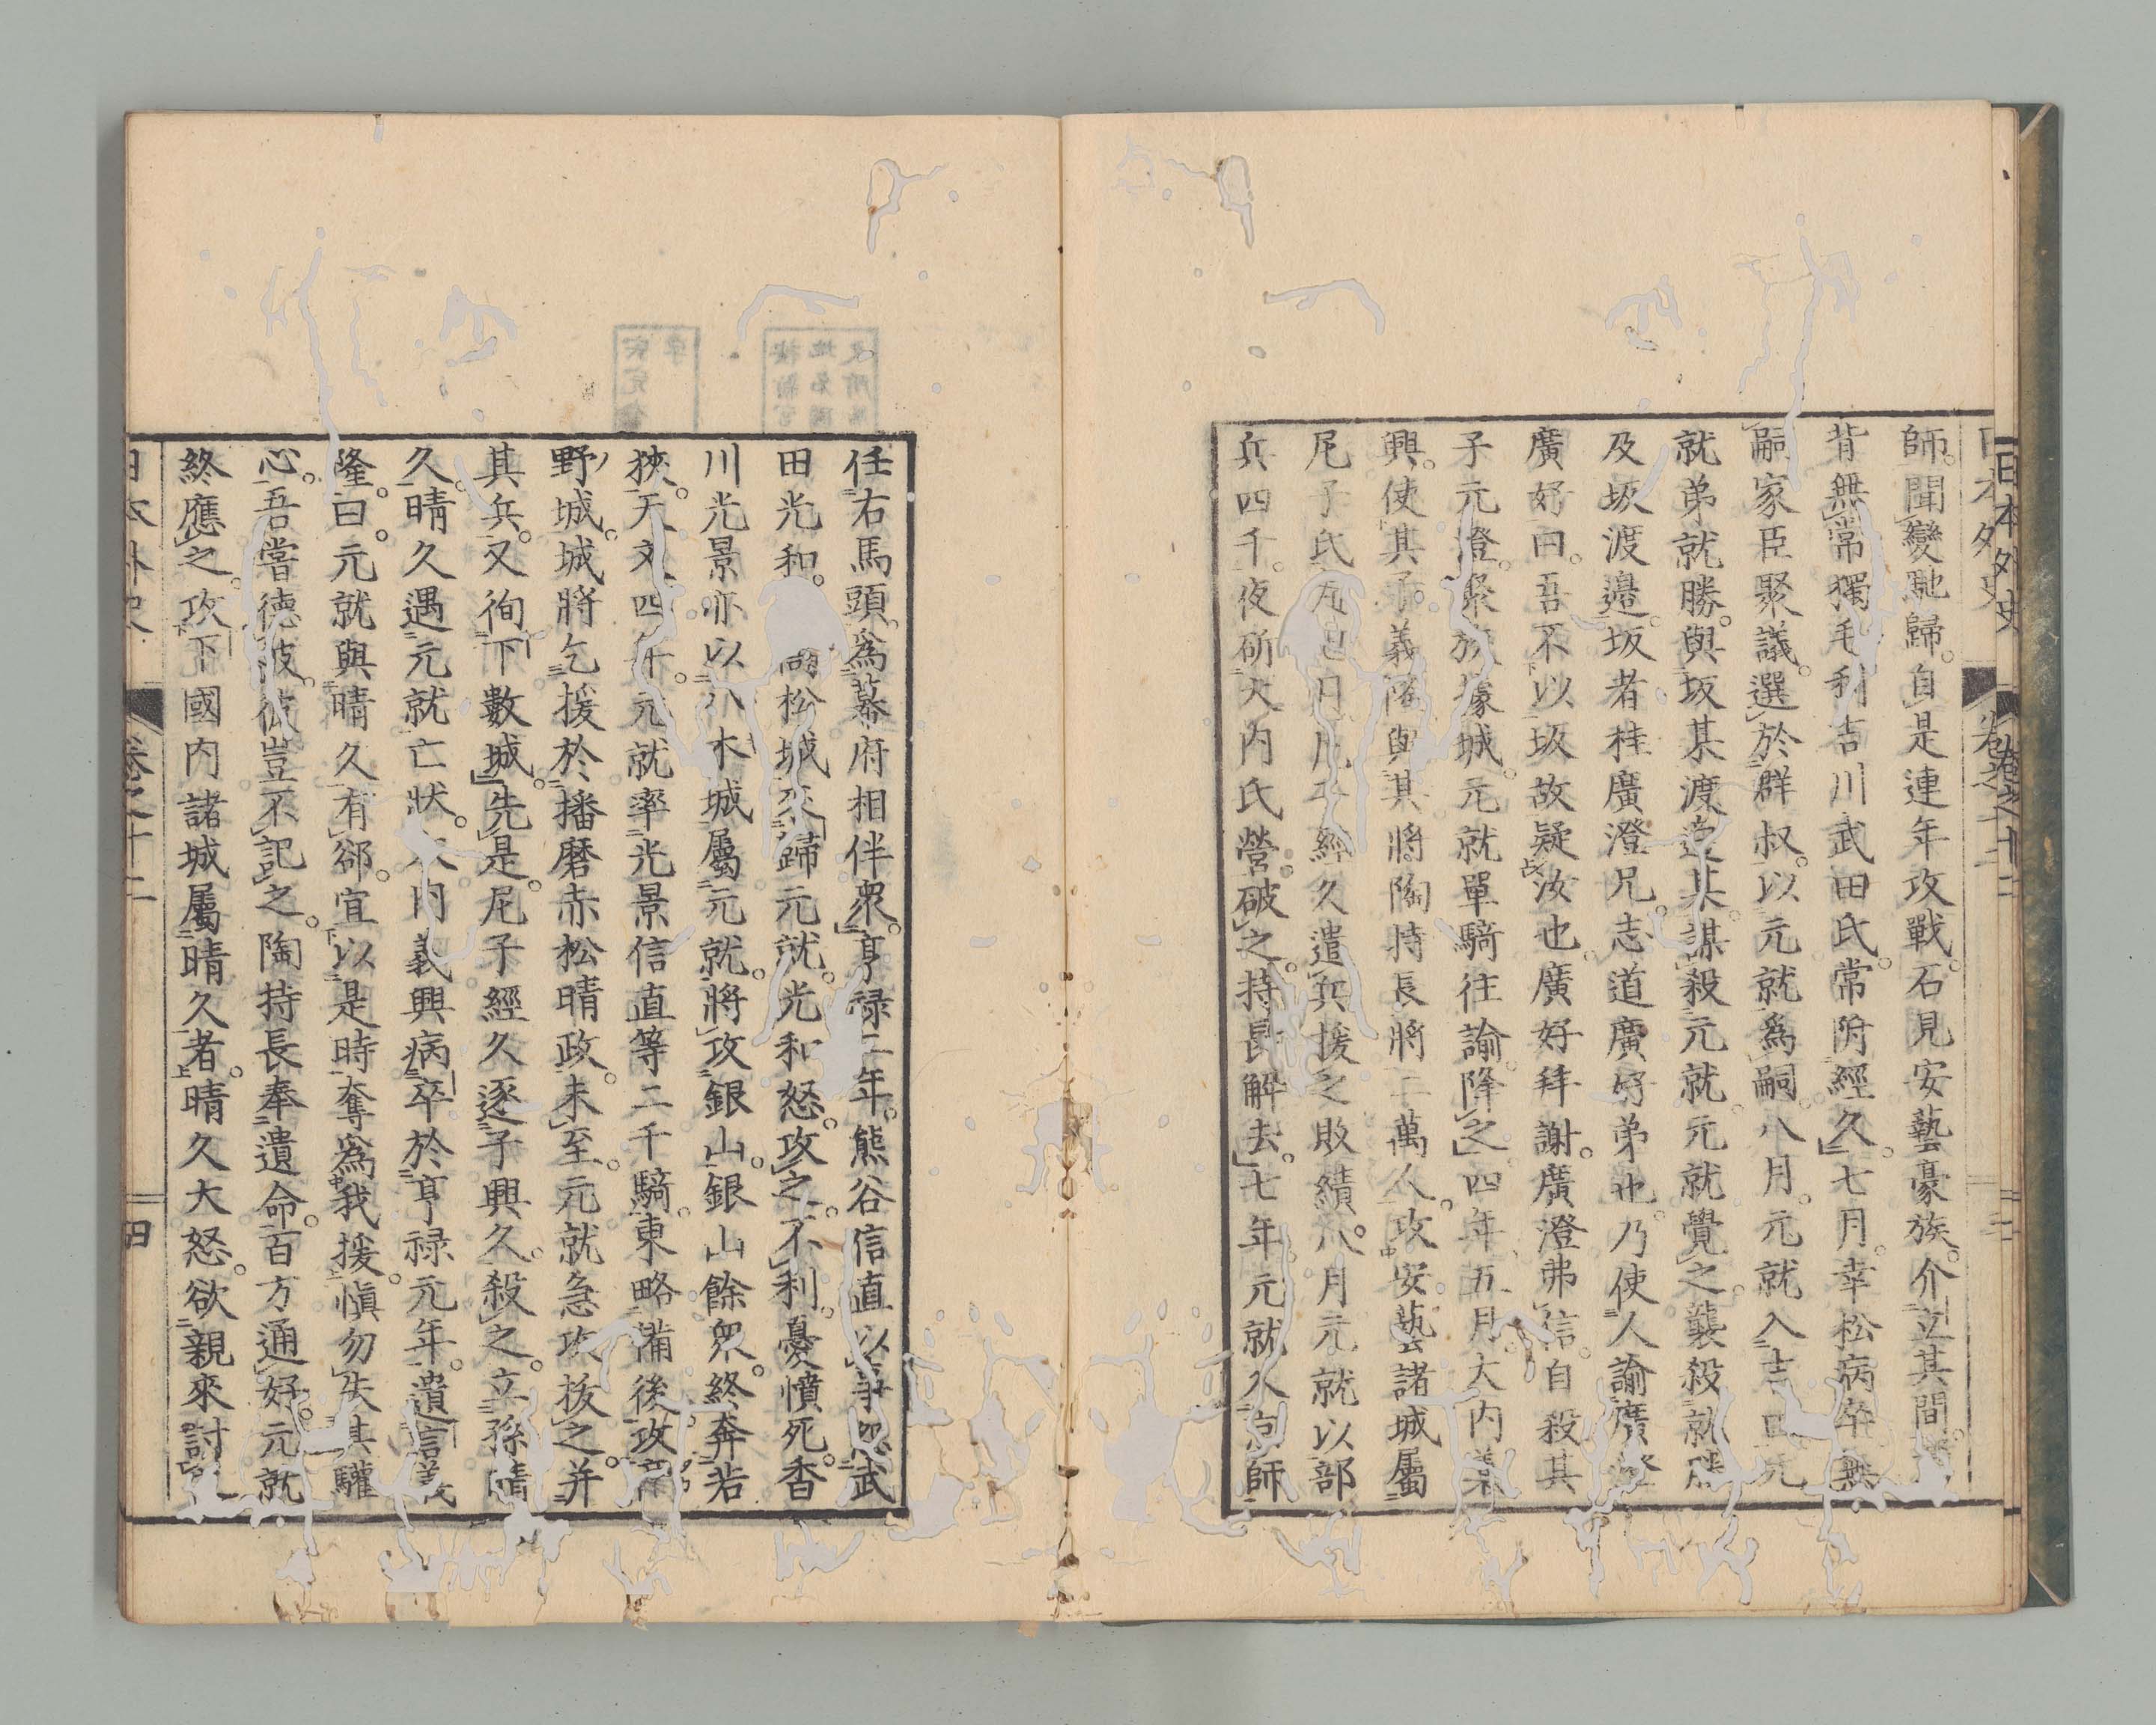 日本外史
卷之十二
師。聞變馳歸。自是連年攻戰。石見安藝豪族。介立其間。
背無常。獨毛利吉川武田氏。常附經久。七月。幸松病卒。無
嗣。家臣聚議。選於群叔。以元就爲嗣。八月。元就入吉田。元
就弟就勝。與坂某渡邊某。謀殺元就。元就覺之。襲殺就勝
及坂渡邉。坂者桂廣澄兄。志道廣好弟也。乃使人諭廣澄
廣好曰。吾不以坂故疑汝也。廣好拜謝。廣澄弗信。自殺其
子元澄。聚族據城。元就單騎往諭。降之。四年五月。大内義
興。使其子義隆與其將陶持長。將二萬人。攻安藝諸城屬
尼子氏者。月。尼子經久遣兵援之敗績。八月元就以部
兵四千。夜斫大内氏營。破之。持長解去。七年。元就入京師
任右馬頭。爲幕府相伴衆。享禄二年。熊谷信直以事怨武
田光和。松城來歸元就。光和怒。攻之。不利。憂憤死。香
川光景亦以八木城屬元就。將攻銀山。銀山餘衆。終奔若
狹。天文四年。元就率光景信直等二千騎。東略備後。攻
野城。城將乞援於播磨赤松晴政。未至。元就急攻拔之。并
其兵。又徇下數城。先是。尼子經久逐子興久。殺之。立孫晴
久。晴久遇元就亡狀。大内義興病卒於享禄元年。遺言義
隆。曰。元就與晴久有郤。宜以是時奪爲我援。愼勿失其驩
心。吾嘗德彼。彼豈不記之。陶持長奉遺命。百方通好。元就
終應之。攻下國内諸城屬晴久者。晴久大怒。欲親來討
日本外史
卷之十二
四